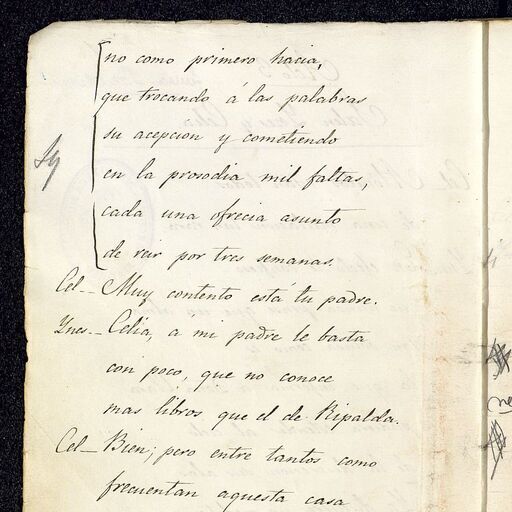 no como primero hacia,
que trocando á las palabras
su acepcion y cometiendo
en la prosodia mil faltas,
cada una ofrecia asunto
de reir por tres semanas.
Cel_ Muy contento está tu padre.
Ynes._ Celia, a mi padre le basta
con poco, que no conoce
mas libros que el de Ripalda.
Cel_ Bien; pero entre tantos como
frecuentan aquesta casa